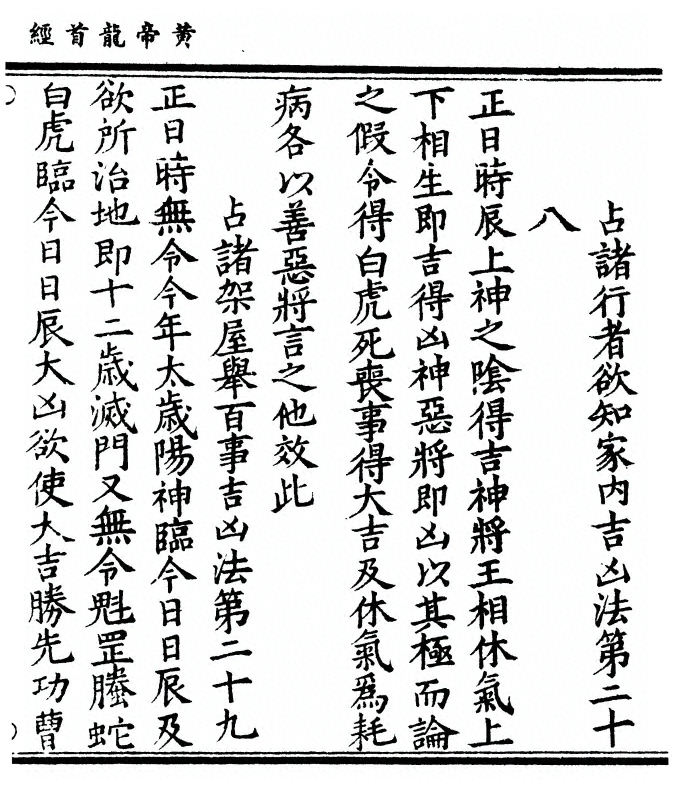 黄帝龍首經
占諸行者欲知家内吉凶法第二十
八
正日時辰上神之隂得吉神將王相休氣上
下相生即吉得凶神惡將即凶以其極而論
之假令得白虎死喪事得大吉及休氣爲耗
病各以善惡將言之他效此
占諸架屋舉百事吉凶法第二十九
正日時無令今年太歲陽神臨今日日辰及
欲所治地即十二歲滅門又無令魁罡螣蛇
白虎臨今日日辰大凶欲使大吉勝先功曹